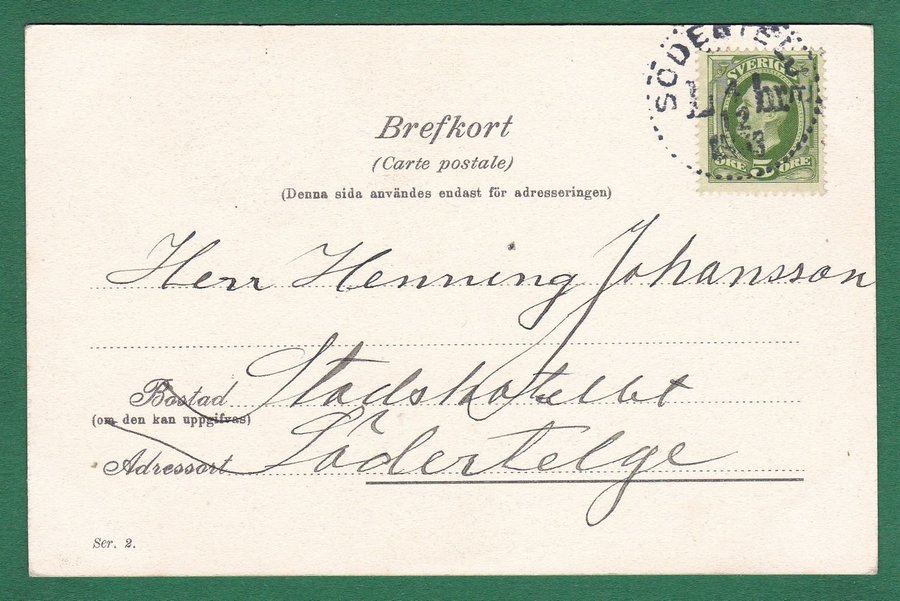 SVERIGE
ÖRE 5 ÖRE
Brefkort
(Carte postale)
(Denna sida användes endast för adresseringen)
Herr Henning Johansson
Bostad Stadshotellet
(om den kan uppgifvas)
Adressort Södertelge
Ser. 2.